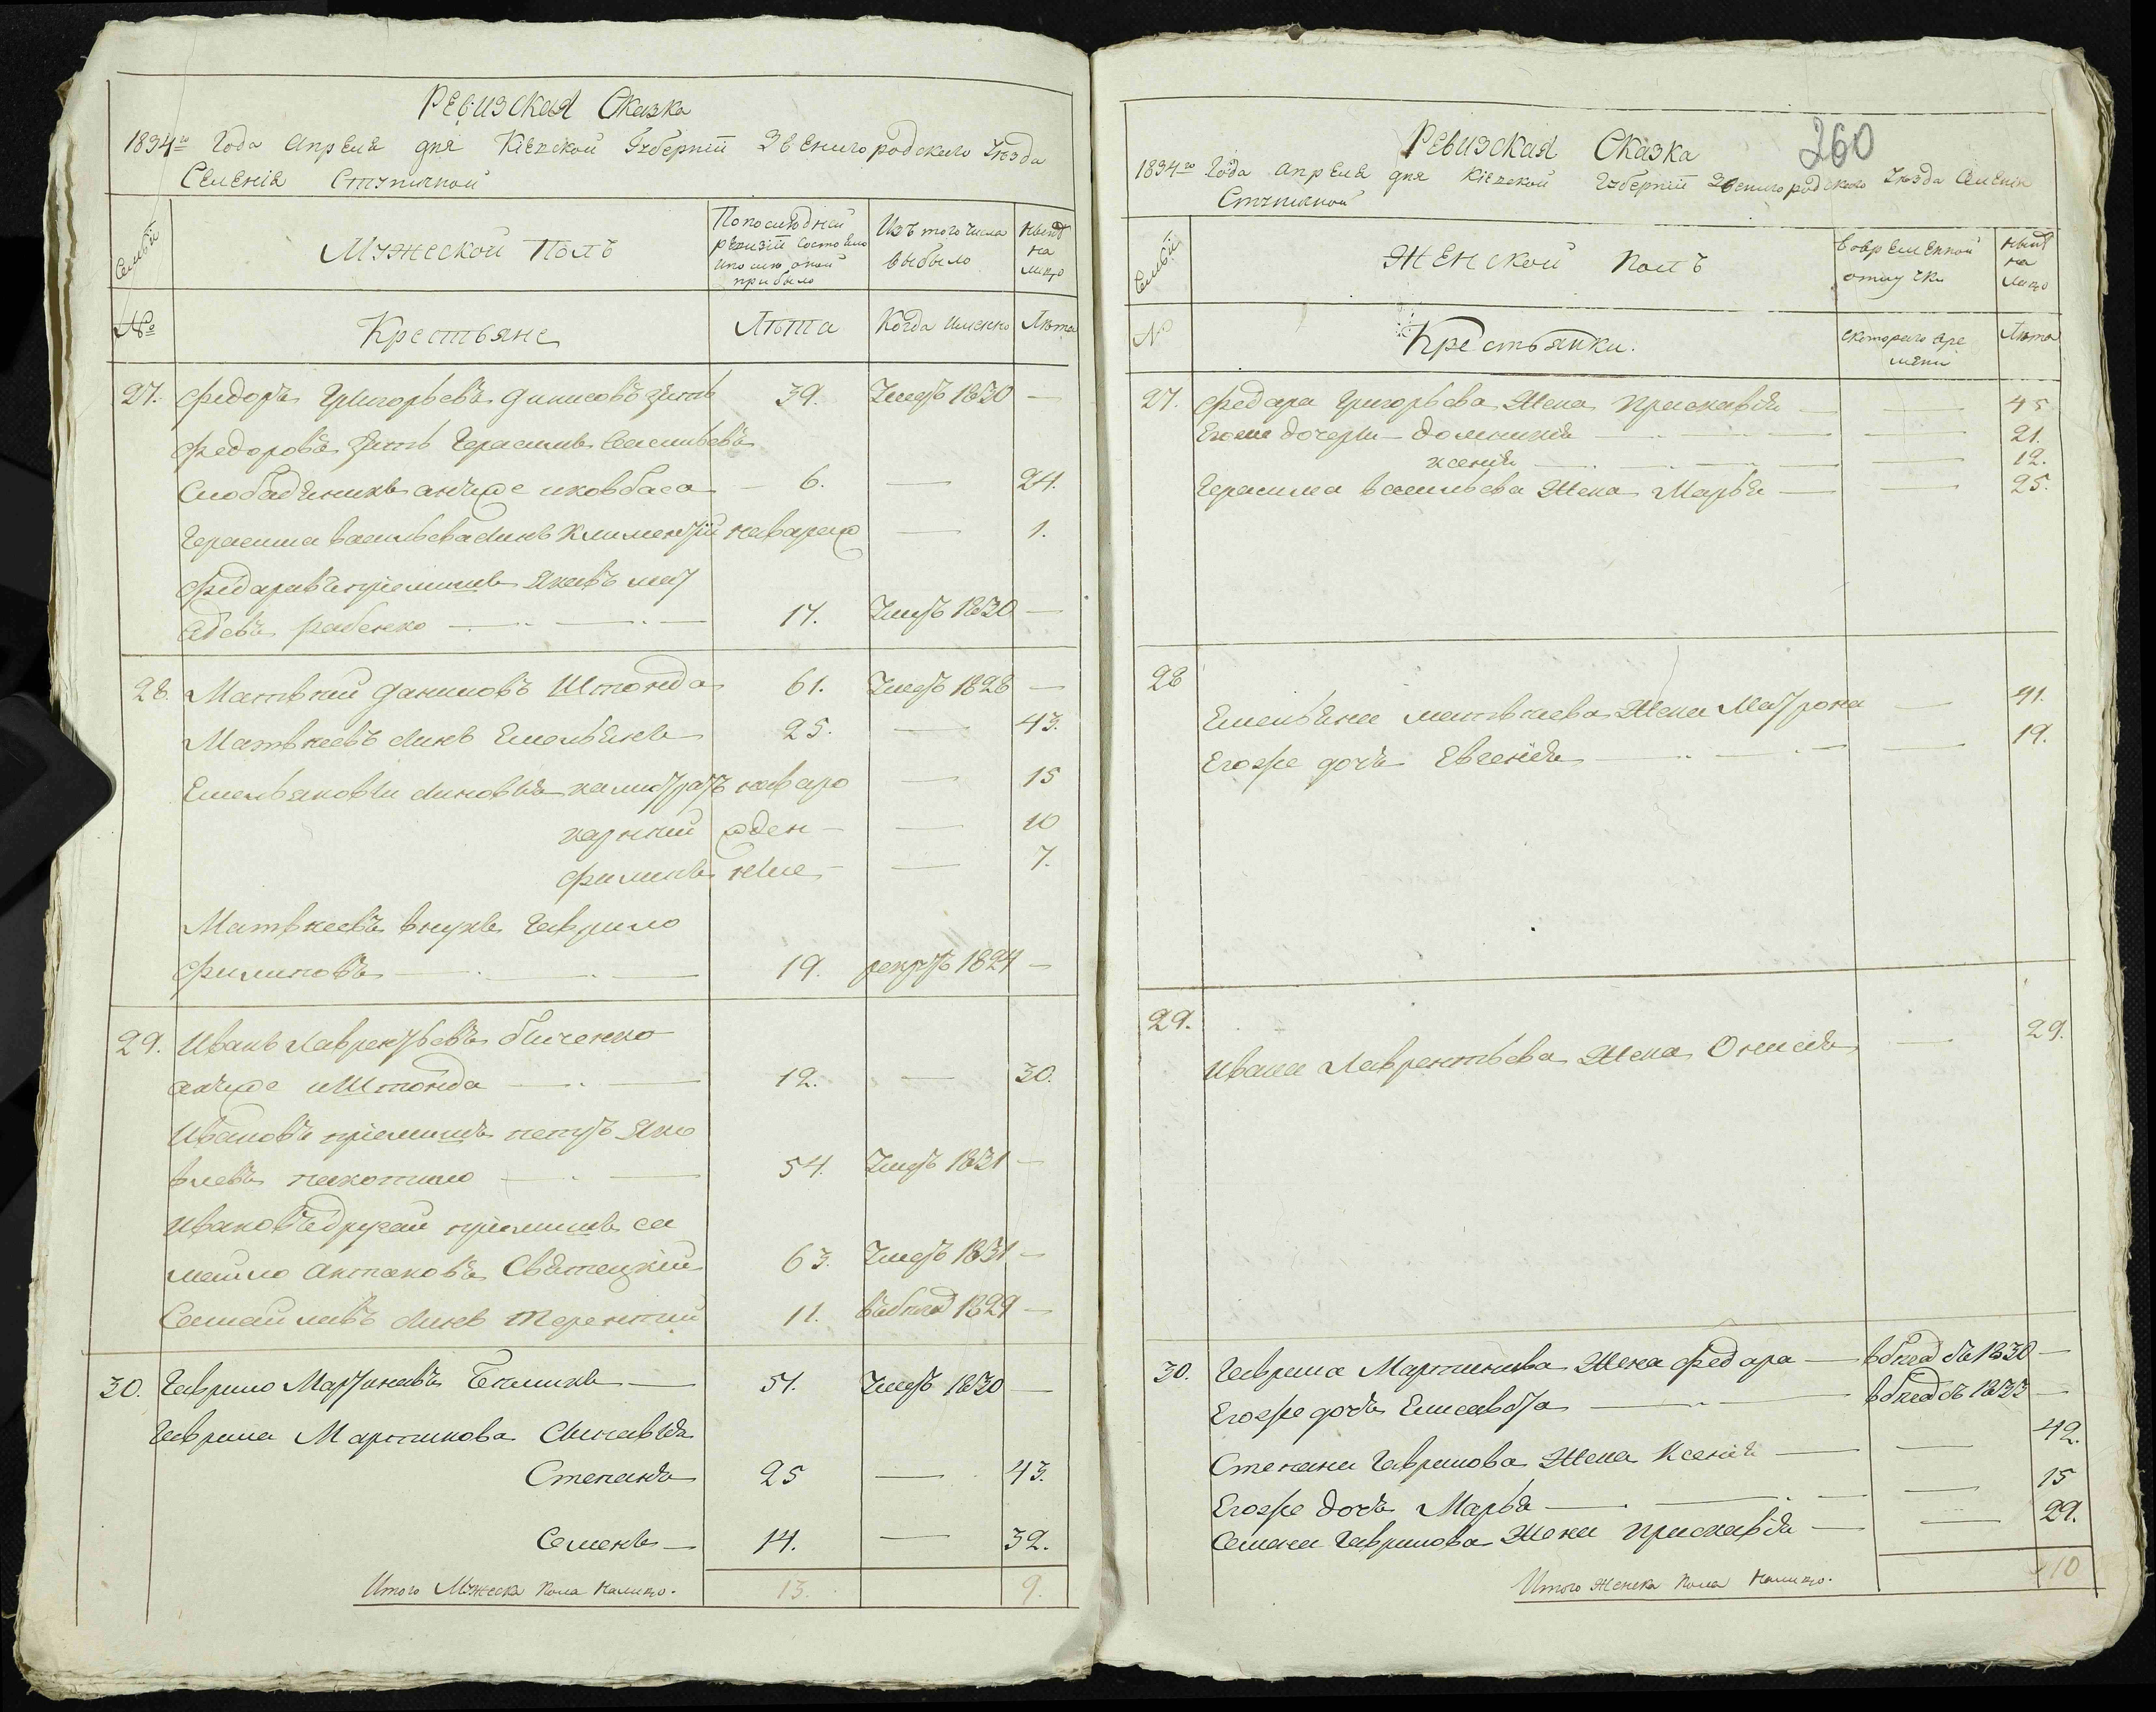 Ревизская Сказка
1834го Года Апреля дня Кіевской Губерніи Звенигородского Уезда
Селенія Ступичной
Семьи
Мужеской Полъ
По последней ревизіи состояло и после оной прибыло
Изъ того числа выбыло
ныне на лицо
№
Крестьяне
Лета
Когда именно
Лета
27. Федоръ Григорьевъ 39. Умеръ 1830 —
Федоровъ зять Герасимъ Васильевъ
6. — 24.
Герасима Васильева синъ Климентій новорож — 1.
Федоровъ пріемишъ Яковъ
17. Умеръ 1830 —
28. Матвкей Даниловъ Штонда 61. Умеръ 1828 —
Матвкеевъ синъ Емельянъ 25. — 43.
Емельяновы синовья калистратъ новоро — 15
карнкий жден — 10
Филипъ ные — 7.
Матвкеевъ внукъ Гаврило
Филиповъ 19. рекрутъ 1824 —
29. Иванъ Лаврентьевъ Биченко
анчше и Штонда 12. — 30.
Ивановъ пріемишъ петръ Яко
влевъ 54. Умеръ 1831 —
Ивановъ другой пріемишъ са
мойло Антоновъ Святецкій 63. Умеръ 1831 —
Самойловъ синъ Терентий 11. 1829 —
30. Гаврило Мартиновъ 51. Умеръ 1830 —
Гаврила Мартинова Синовья
Степанъ 25 — 43.
Семенъ — 14. — 32.
Итого Мужеска пола налицо. 13. 9.
260
Ревизская Сказка
1834го Года Апреля дня Кіевской Губерніи Звенигородского Уезда Селенія
Ступичной
Семьи
Женской полъ
Во временной отлучке
ныне на лицо
№
Крестьянки.
скоторого времени
Лета
27. Федора Григорьева Жена Прискавія — 45
Егоже дочери — Домникія — 21.
ксенія — 12.
Герасима Васильева Жена Марья — 25.
28
Емельяна матвкеева Жена Матрона — 41.
Егоже дочь Евгенія — 19.
29. 29.
Ивана Лаврентьева Жена Онисія —
30. Гаврила Мартинива Жена Федора — 1830 —
Егоже дочь Елисавета — 1833 —
Степана Гаврилова Жена Ксенія — 42.
Егоже дочь Марья — 15
Семена Гаврилова Жена прискавія — 29.
Итого женска пола налицо. 10